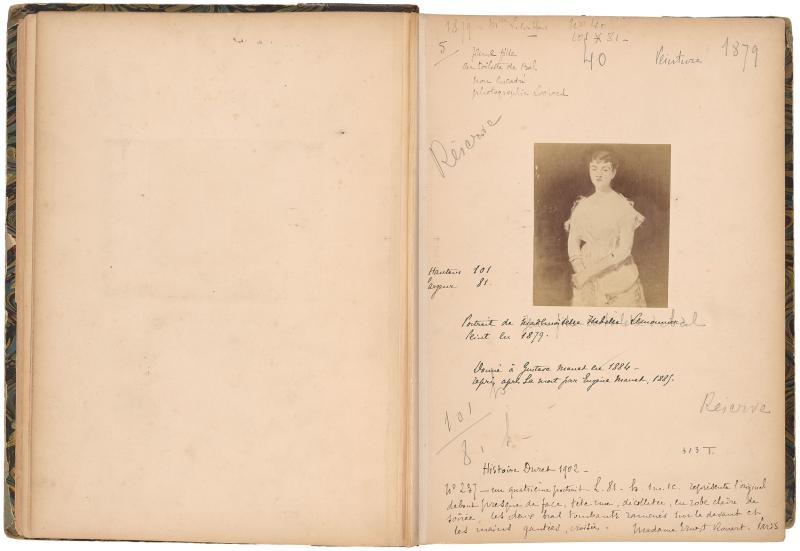 1879 - Mme No 40
101 X 81 -
5/ Jeune fille
en toilette de Bal
non encadré
photographie Lochard
40
Peinture 1879
Réserve
Hauteur 101
Largeur 81.
Portrait de Mademoiselle Isabelle Lemonnier
Peint en 1879.
Donné à Gustave Manet en 1884 -
repris après sa mort par Eugène Manet, 1885.
101
81
Réserve
313 T.
Histoire Duret 1902 -
No 237 - un quatrième portrait L. 81 - h. 1 m. 1c. représente l'original
debout presque de face, tête nue, décolletée, en robe claire de
soirée, les deux bras tombants ramenés sur le devant et
les mains gantées, croisées. Madame Ernest Rouart. Paris